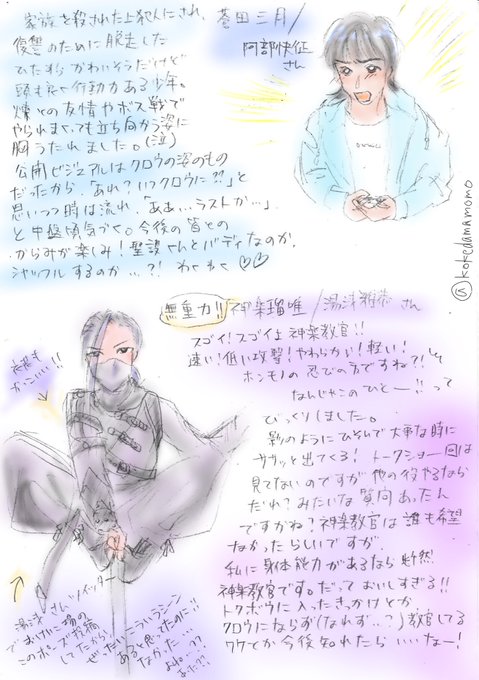 家族を殺された上犯人にされ、
復讐のために脱走した
ひたすらかわいそうだけど
頭も良く行動力ある少年。
燎との友情やボス戦で
やられまくっても立ち向かう姿に
胸うたれました。(泣)
公開ビジュアルはクロウの姿のもの
だったから、「あれ?いつクロウに⁇」と
思いつつ時は流れ、「ああ…ラストか…」
と中盤頃気づく。今後の皆との
からみが楽しみ!聖護さんとバディなのか、
シャッフルするのか…?! わくわく♡♡
蒼田三月/
阿部快征
さん
@kokedamamomo
無重力!!神楽瑠唯/湯浅雅恭さん
スゴイ!スゴイよ神楽教官!!
速い!低い攻撃!やわらかい!軽い!
ホンモノの忍びの方ですね?!
なんじゃこのひとー!!って
びっくりしました。
影のようにひそんで大事な時に
ササッと出てくる!トークショー回は
見てないのですが他の役やるなら
だれ?みたいな質問あったん
ですかね?神楽教官は誰も希望
なかったらしいですが、
私に身体能力があるなら断然
神楽教官です。だっておいしすぎる!!
トクボウに入ったきっかけとか
クロウにならず(なれず…?)教官してる
ワケとか今後知れたらいいなー!
かっこいい!!
湯浅さんツイッター
このポーズ投稿
してたから、
ぜったいこういうシーン
あると思ってたのに!!
なかった…
よね…??
あった??